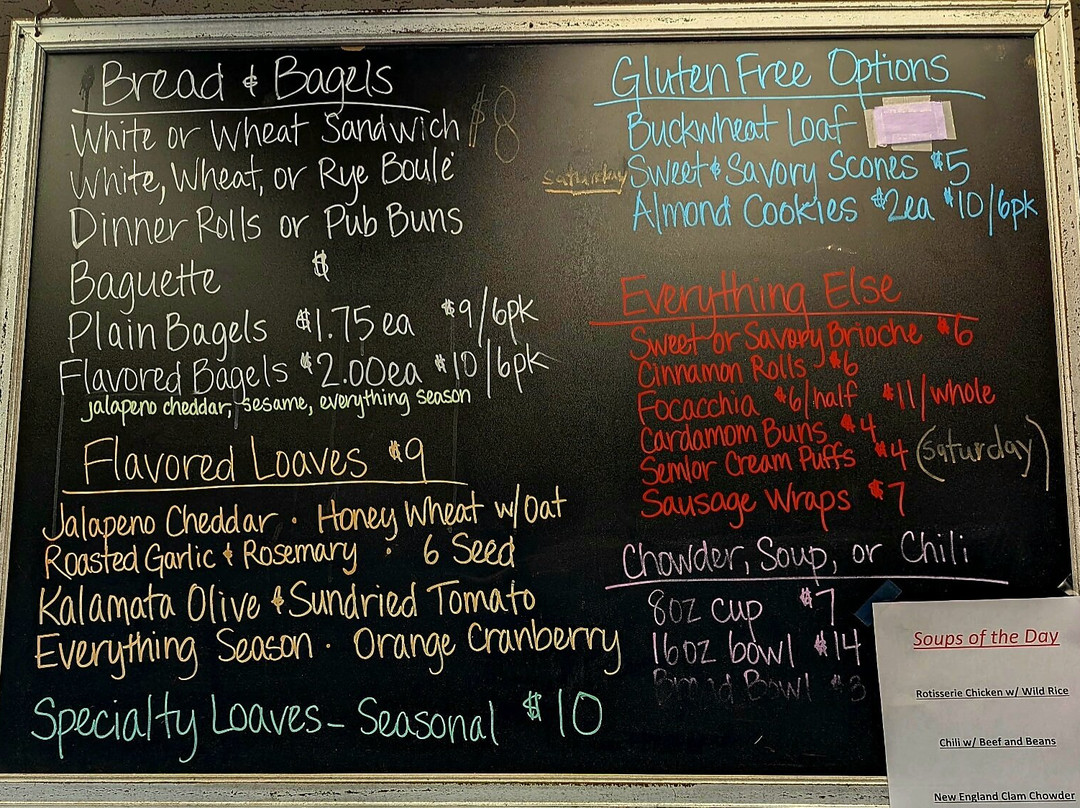 Bread & Bagels
White or Wheat Sandwich $8
White, Wheat, or Rye Boule
Dinner Rolls or Pub Buns
Baguette $
Plain Bagels $1.75 ea $9/6pk
Flavored Bagels $2.00ea $10/6pk
jalapeno cheddar, sesame, everything season
Flavored Loaves $9
Jalapeno Cheddar · Honey Wheat w/Oat
Roasted Garlic & Rosemary · 6 Seed
Kalamata Olive & Sundried Tomato
Everything Season · Orange Cranberry
Specialty Loaves - Seasonal $10
Gluten Free Options
Buckwheat Loaf
saturday Sweet & Savory Scones $5
Almond Cookies $2ea $10/6pk
Everything Else
Sweet or Savory Brioche $6
Cinnamon Rolls $6
Focacchia $6/half $11/whole
Cardamom Buns $4
Semlor Cream Puffs $4 (saturday)
Sausage Wraps $7
Chowder, Soup, or Chili
8oz cup $7
16oz bowl $14
Bread Bowl $3
Soups of the Day
Rotisserie Chicken w/ Wild Rice
Chili w/ Beef and Beans
New England Clam Chowder